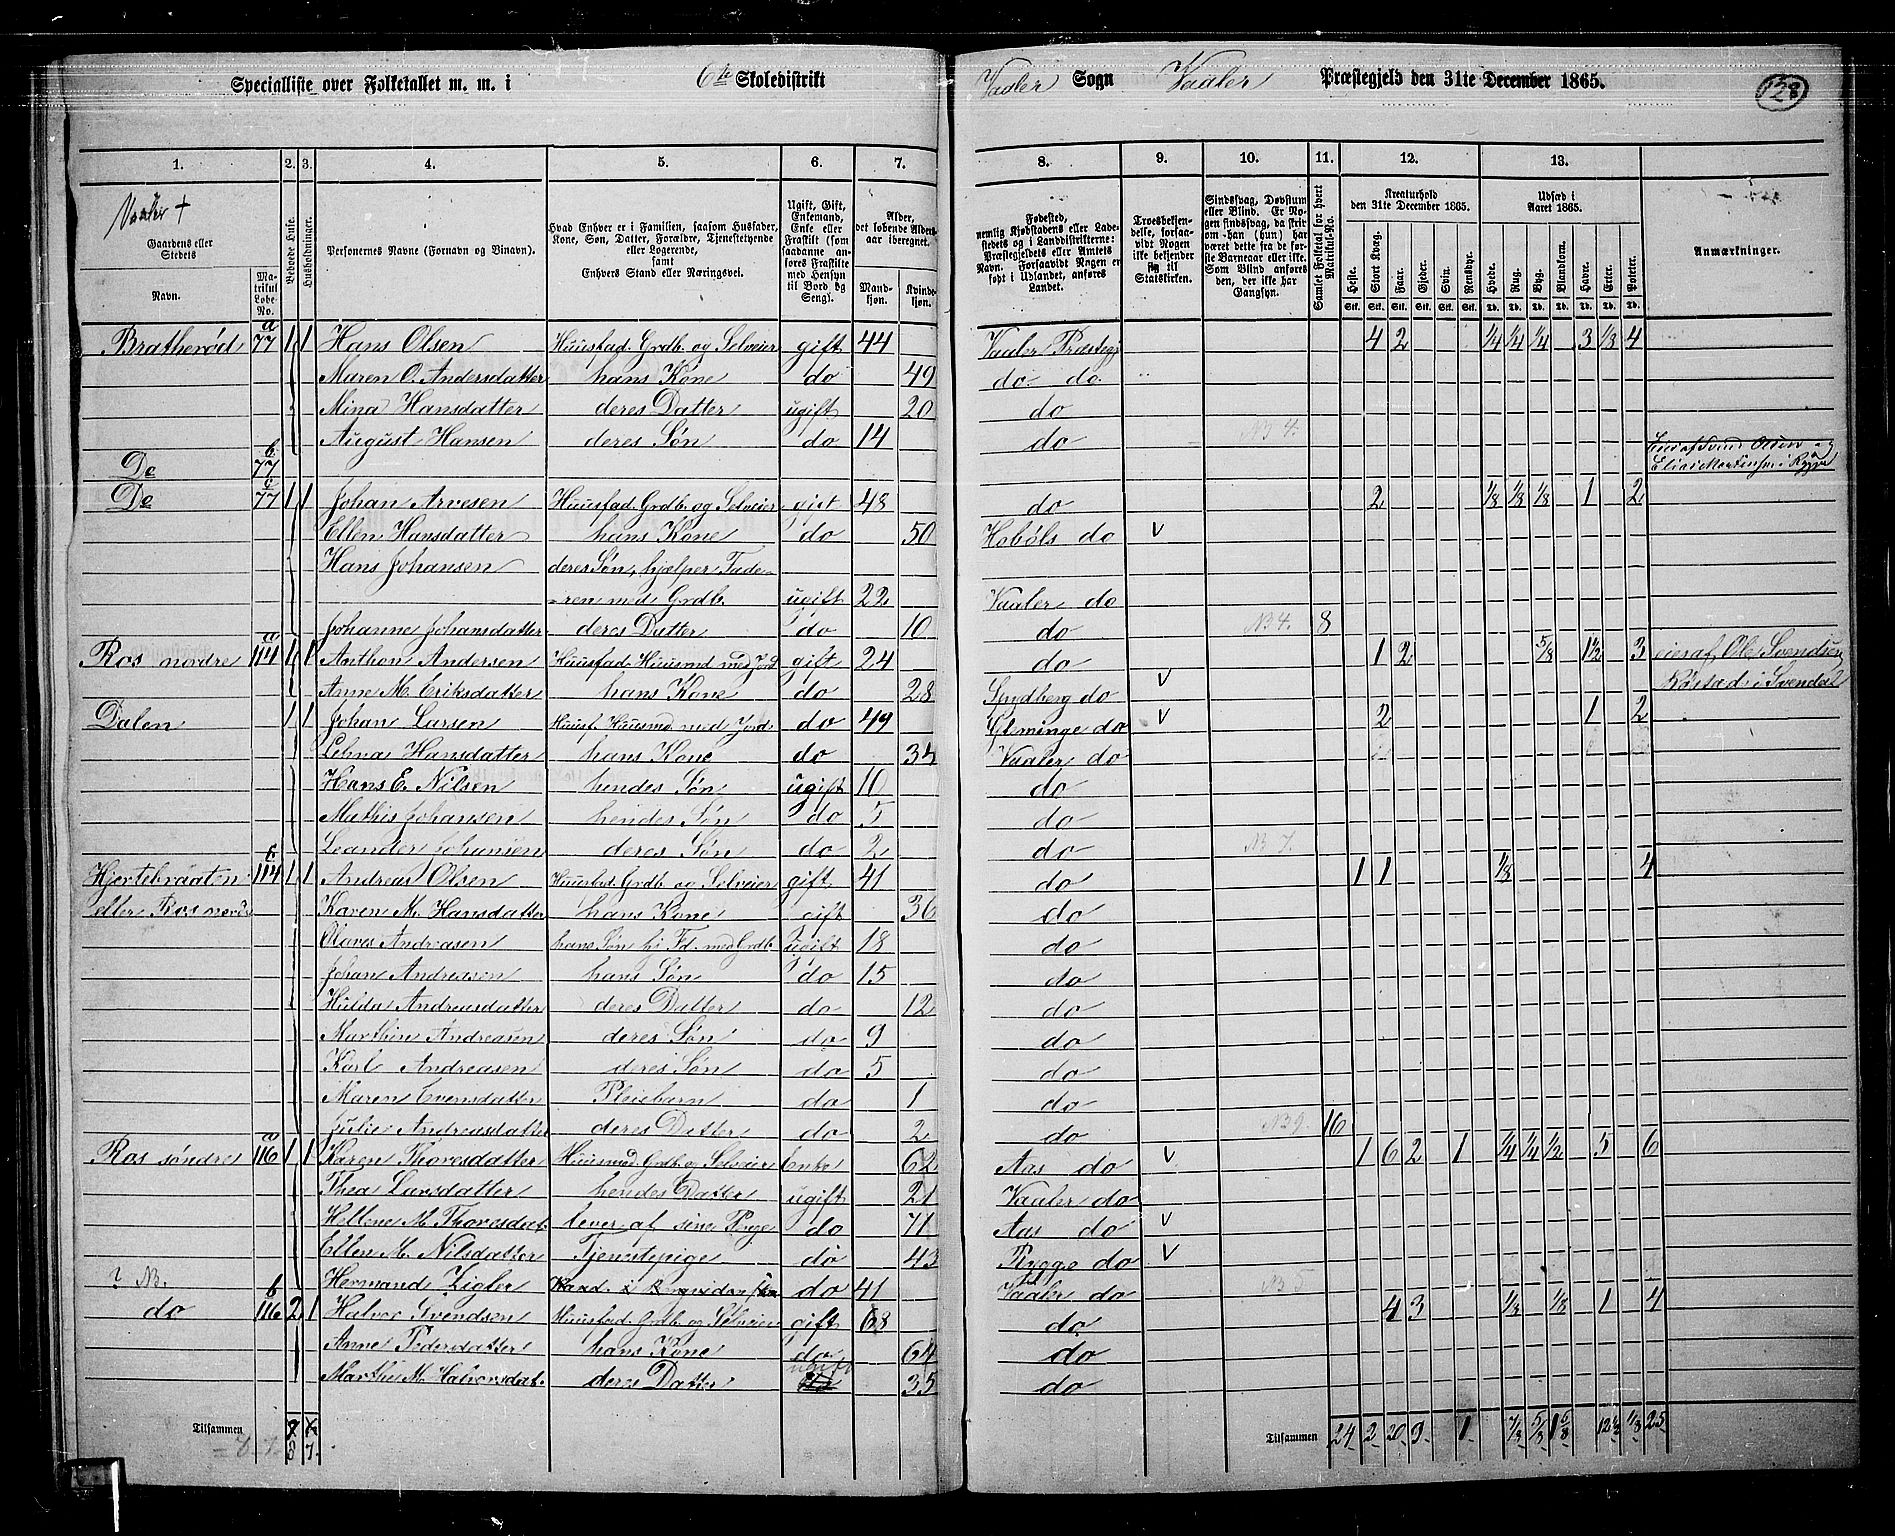 Specialliste over Folketallet m. m. i 6te Skoledistrikt Vaaler Sogn Vaaler Præstegjeld den 31te December 1865.
128
1. 2. 3. 4. 5. 6. 7. 8. 9. 10. 11. 12. 13.
Vaaler +
Gaardens eller Stedets Navn.
Matrikul Løbe-No.
Beboede Huse.
Husholdninger.
Personernes Navne (Fornavn og Binavn).
Hvad Enhver er i Familien, saasom Husfader, Kone, Søn, Datter, Forældre, Tjenestetyende eller Logerende, samt Enhvers Stand eller Næringsvei.
Ugift, Gift, Enkemand, Enke eller Fraskilt (som saadanne anføres Fraskilte med Hensyn til Bord og Seng).
Alder, det løbende Aldersaar iberegnet.
Mandkjøn. Kvindekjøn.
Fødested, nemlig Kjøbstadens eller Ladestedets og i Landdistrikterne: Præstegjeldets eller Amtets Navn. Forsaavidt Nogen er født i Udlandet, anføres Landet.
Troesbekjendelse, forsaavidt Nogen ikke bekjender sig til Statskirken.
Sindssvag, Døvstum eller Blind. Er Nogen sindssvag, da skrives om han (hun) har været dette fra de første Barneaar eller ikke. Som Blind anføres den, der ikke har Gangsyn.
Samlet Folketal for hvert Matrikul-No.
Kreaturhold den 31te December 1865.
Heste. Stort Kvæg. Faar. Gjeder. Svin. Rensdyr.
Udsæd i Aaret 1865.
Hvede. Rug. Byg. Blandkorn. Havre. Erter. Poteter.
Anmærkninger.
Bratherød 77 a 1 1 Hans Olsen Huusfad. Grdb. og Selveier gift 44 Vaaler Præstegj 4 2 1/4 1/4 1/4 3 1/3 4
Maren O. Andersdatter hans Kone do 49 do do
Mina Hansdatter deres Datter ugift 20 do
August Hansen deres Søn do 14 do N 4.
Do 77 b
Do 77 c 1 1 Johan Arvesen Huusfad. Grdb. og Selveier gift 48 do 2 1/8 1/8 1/8 1 2
Ellen Hansdatter hans Kone do 50 Hobøls do v
Hans Johansen deres Søn, hjælper Fade-
-ren med Grdb. ugift 22 Vaaler do
Johanne Johansdatter deres Datter do 10 do N 4. 8
Ros nordre 114 a 1 1 Anthon Andersen Huusfad. Huusmd med Jord gift 24 do 1 2 5/8 1 1/2 3 eies af Ole Svendsen
Anne M. Eriksdatter hans Kone do 28 Spydberg do v
Dalen 1 1 Johan Larsen Huusf. Huusmd med Jord do 49 Gleminge do v 2 1 2
Lelma Hansdatter hans Kone do 34 Vaaler do
Hans E. Nilsen hendes Søn ugift 10 do
Mathis Johansen hendes Søn do 5 do
Leander Johansen deres Søn do 2 do N 7.
Hjertebraaten 114 1 1 Andreas Olsen Huusfad. Grdb. og Selveier gift 41 do 1 1 1/8 4
eller Ros nordre Karen M. Hansdatter hans Kone gift 36 do
Olaves Andreasen hans Søn hj Fd. med Grdb ugift 18 do
Johan Andreasen hans Søn do 15 do
Hulda Andreasdatter deres Datter do 12 do
Marthin Andreasen deres Søn do 9 do
Karl Andreasen deres Søn do 5 do
Maren Evensdatter Pleiebarn do 1 do
Julie Andreasdatter deres Datter do 2 do N 9. 16
Ros søndre 116 a 1 1 Karen Thoresdatter Huusmod. Grdb. og Selveier Enke 62 Aas do v 1 6 2 1 1/4 1/4 1/2 5 6
Thea Larsdatter hendes Datter ugift 21 Vaaler do
Hellene M. Thoresdat. lever af sine Penge do 71 Aas do v
Ellen M. Nilsdatter Tjenestepige do 43 Rygge do v
? N. Hermand Zigler do 41 Vaaler do N 5
do 116 b 2 1 Halvor Svendsen Huusfad. Grdb og Selveier gift 68 do 4 3 1/8 1/8 1 4
Anne Pedersdatter hans Kone do 64 do
Marthe M. Halvorsdat. deres Datter ugift 35 do
Tilsammen 8 7. Tilsammen 24 2 20 9 1 7/8 5/8 1 5/8 12 1/2 1/3 25